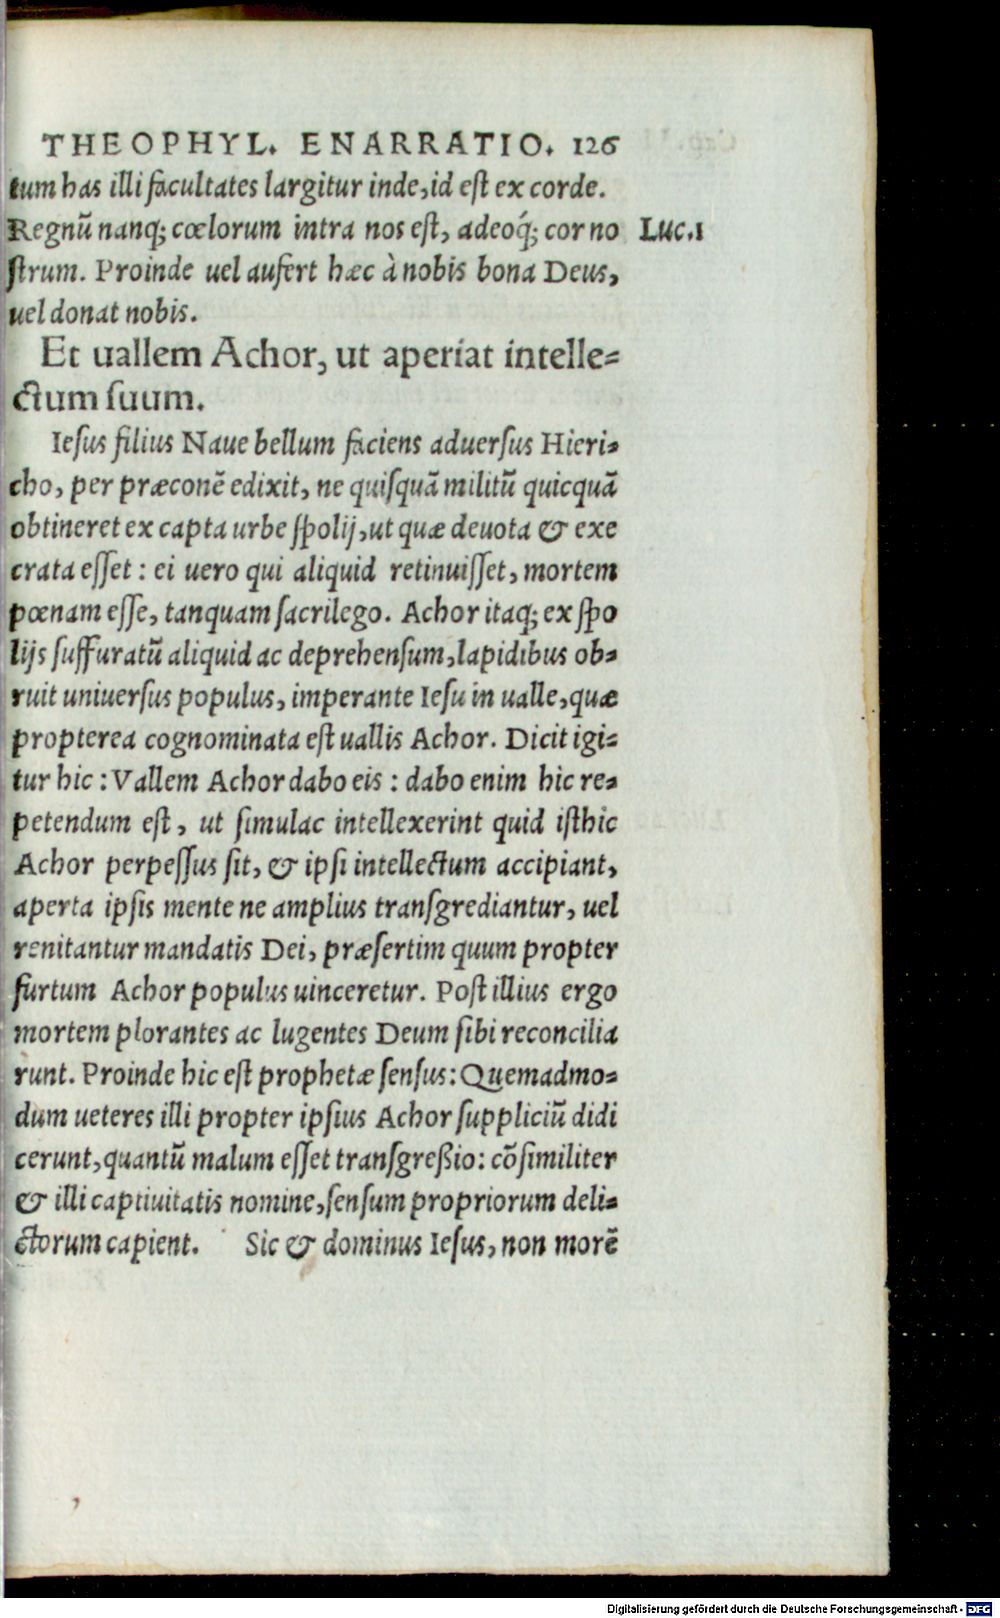 THEOPHYL. ENARRATIO. 126
tum has illi facultates largitur inde, id est ex corde.
Regnũ nanq; cœlorum intra nos est, adeoq́; cor no Luc.1
strum. Proinde uel aufert hæc à nobis bona Deus,
uel donat nobis.
Et uallem Achor, ut aperiat intelle=
ctum suum.
Iesus filius Naue bellum faciens aduersus Hieri=
cho, per præconẽ edixit, ne quisquã militũ quicquã
obtineret ex capta urbe spolij, ut quæ deuota & exe
crata esset: ei uero qui aliquid retinuisset, mortem
pœnam esse, tanquam sacrilego. Achor itaq; ex spo
lijs suffuratũ aliquid ac deprehensum, lapidibus ob=
ruit uniuersus populus, imperante Iesu in ualle, quæ
propterea cognominata est uallis Achor. Dicit igi=
tur hic: Vallem Achor dabo eis: dabo enim hic re=
petendum est, ut simulac intellexerint quid isthic
Achor perpessus sit, & ipsi intellectum accipiant,
aperta ipsis mente ne amplius transgrediantur, uel
renitantur mandatis Dei, præsertim quum propter
furtum Achor populus uinceretur. Post illius ergo
mortem plorantes ac lugentes Deum sibi reconcilia
runt. Proinde hic est prophetæ sensus: Quemadmo=
dum ueteres illi propter ipsius Achor suppliciũ didi
cerunt, quantũ malum esset transgreßio: cõsimiliter
& illi captiuitatis nomine, sensum propriorum deli=
ctorum capient. Sic & dominus Iesus, non morẽ
Digitalisierung gefördert durch die Deutsche Forschungsgemeinschaft - DFG